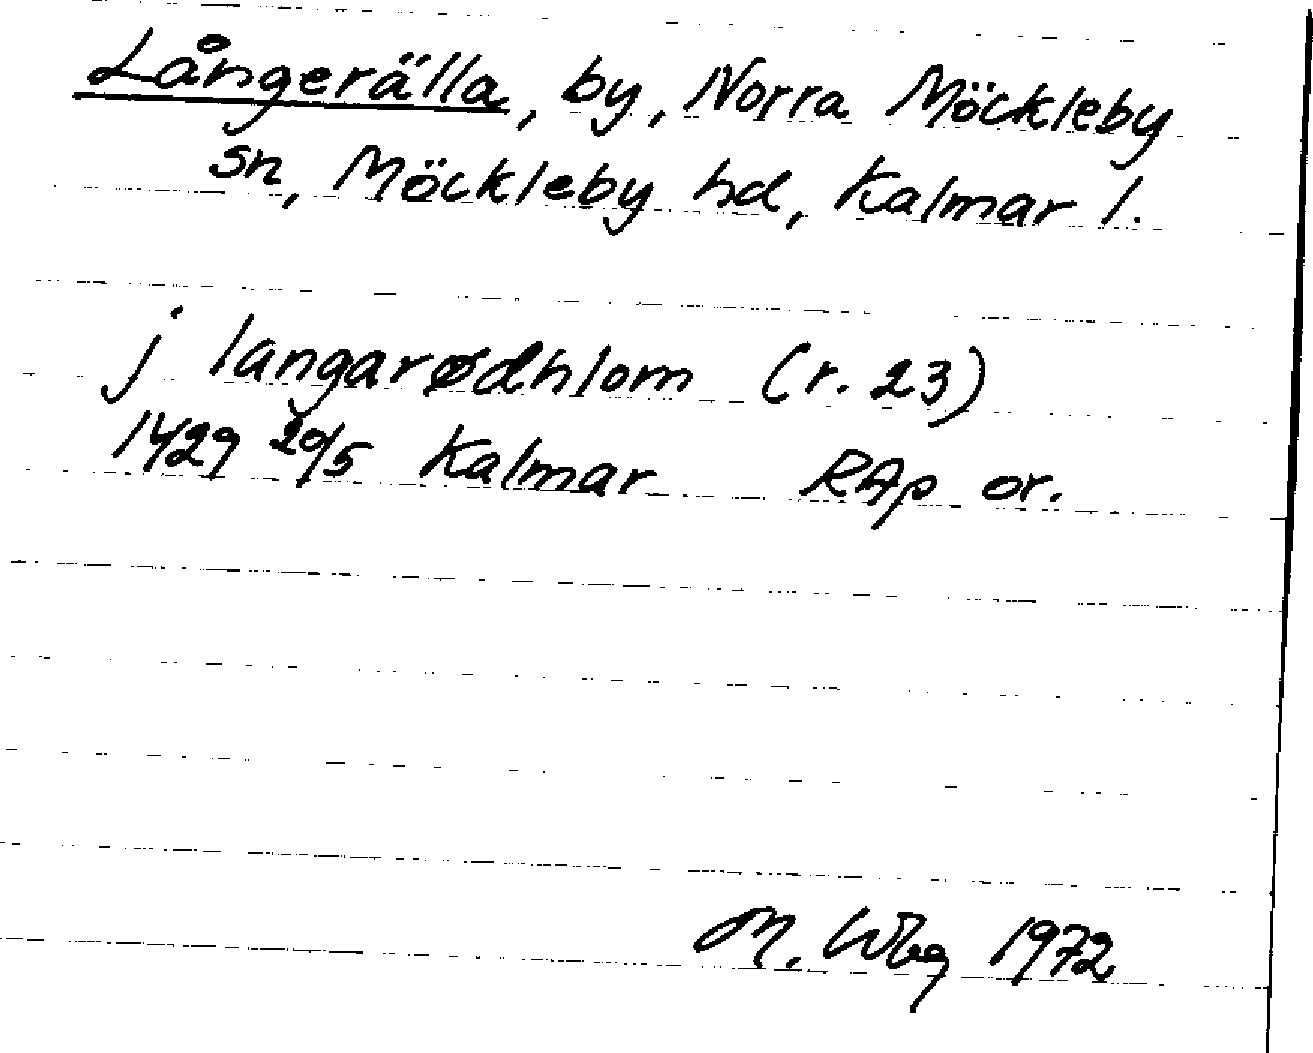 Långerälla, by, Norra Möckleby
sn, Möckleby hd, Kalmar l.
j langarødhlom (r. 23)
1429 20/5 Kalmar RAp or.
M. Wbg 1972